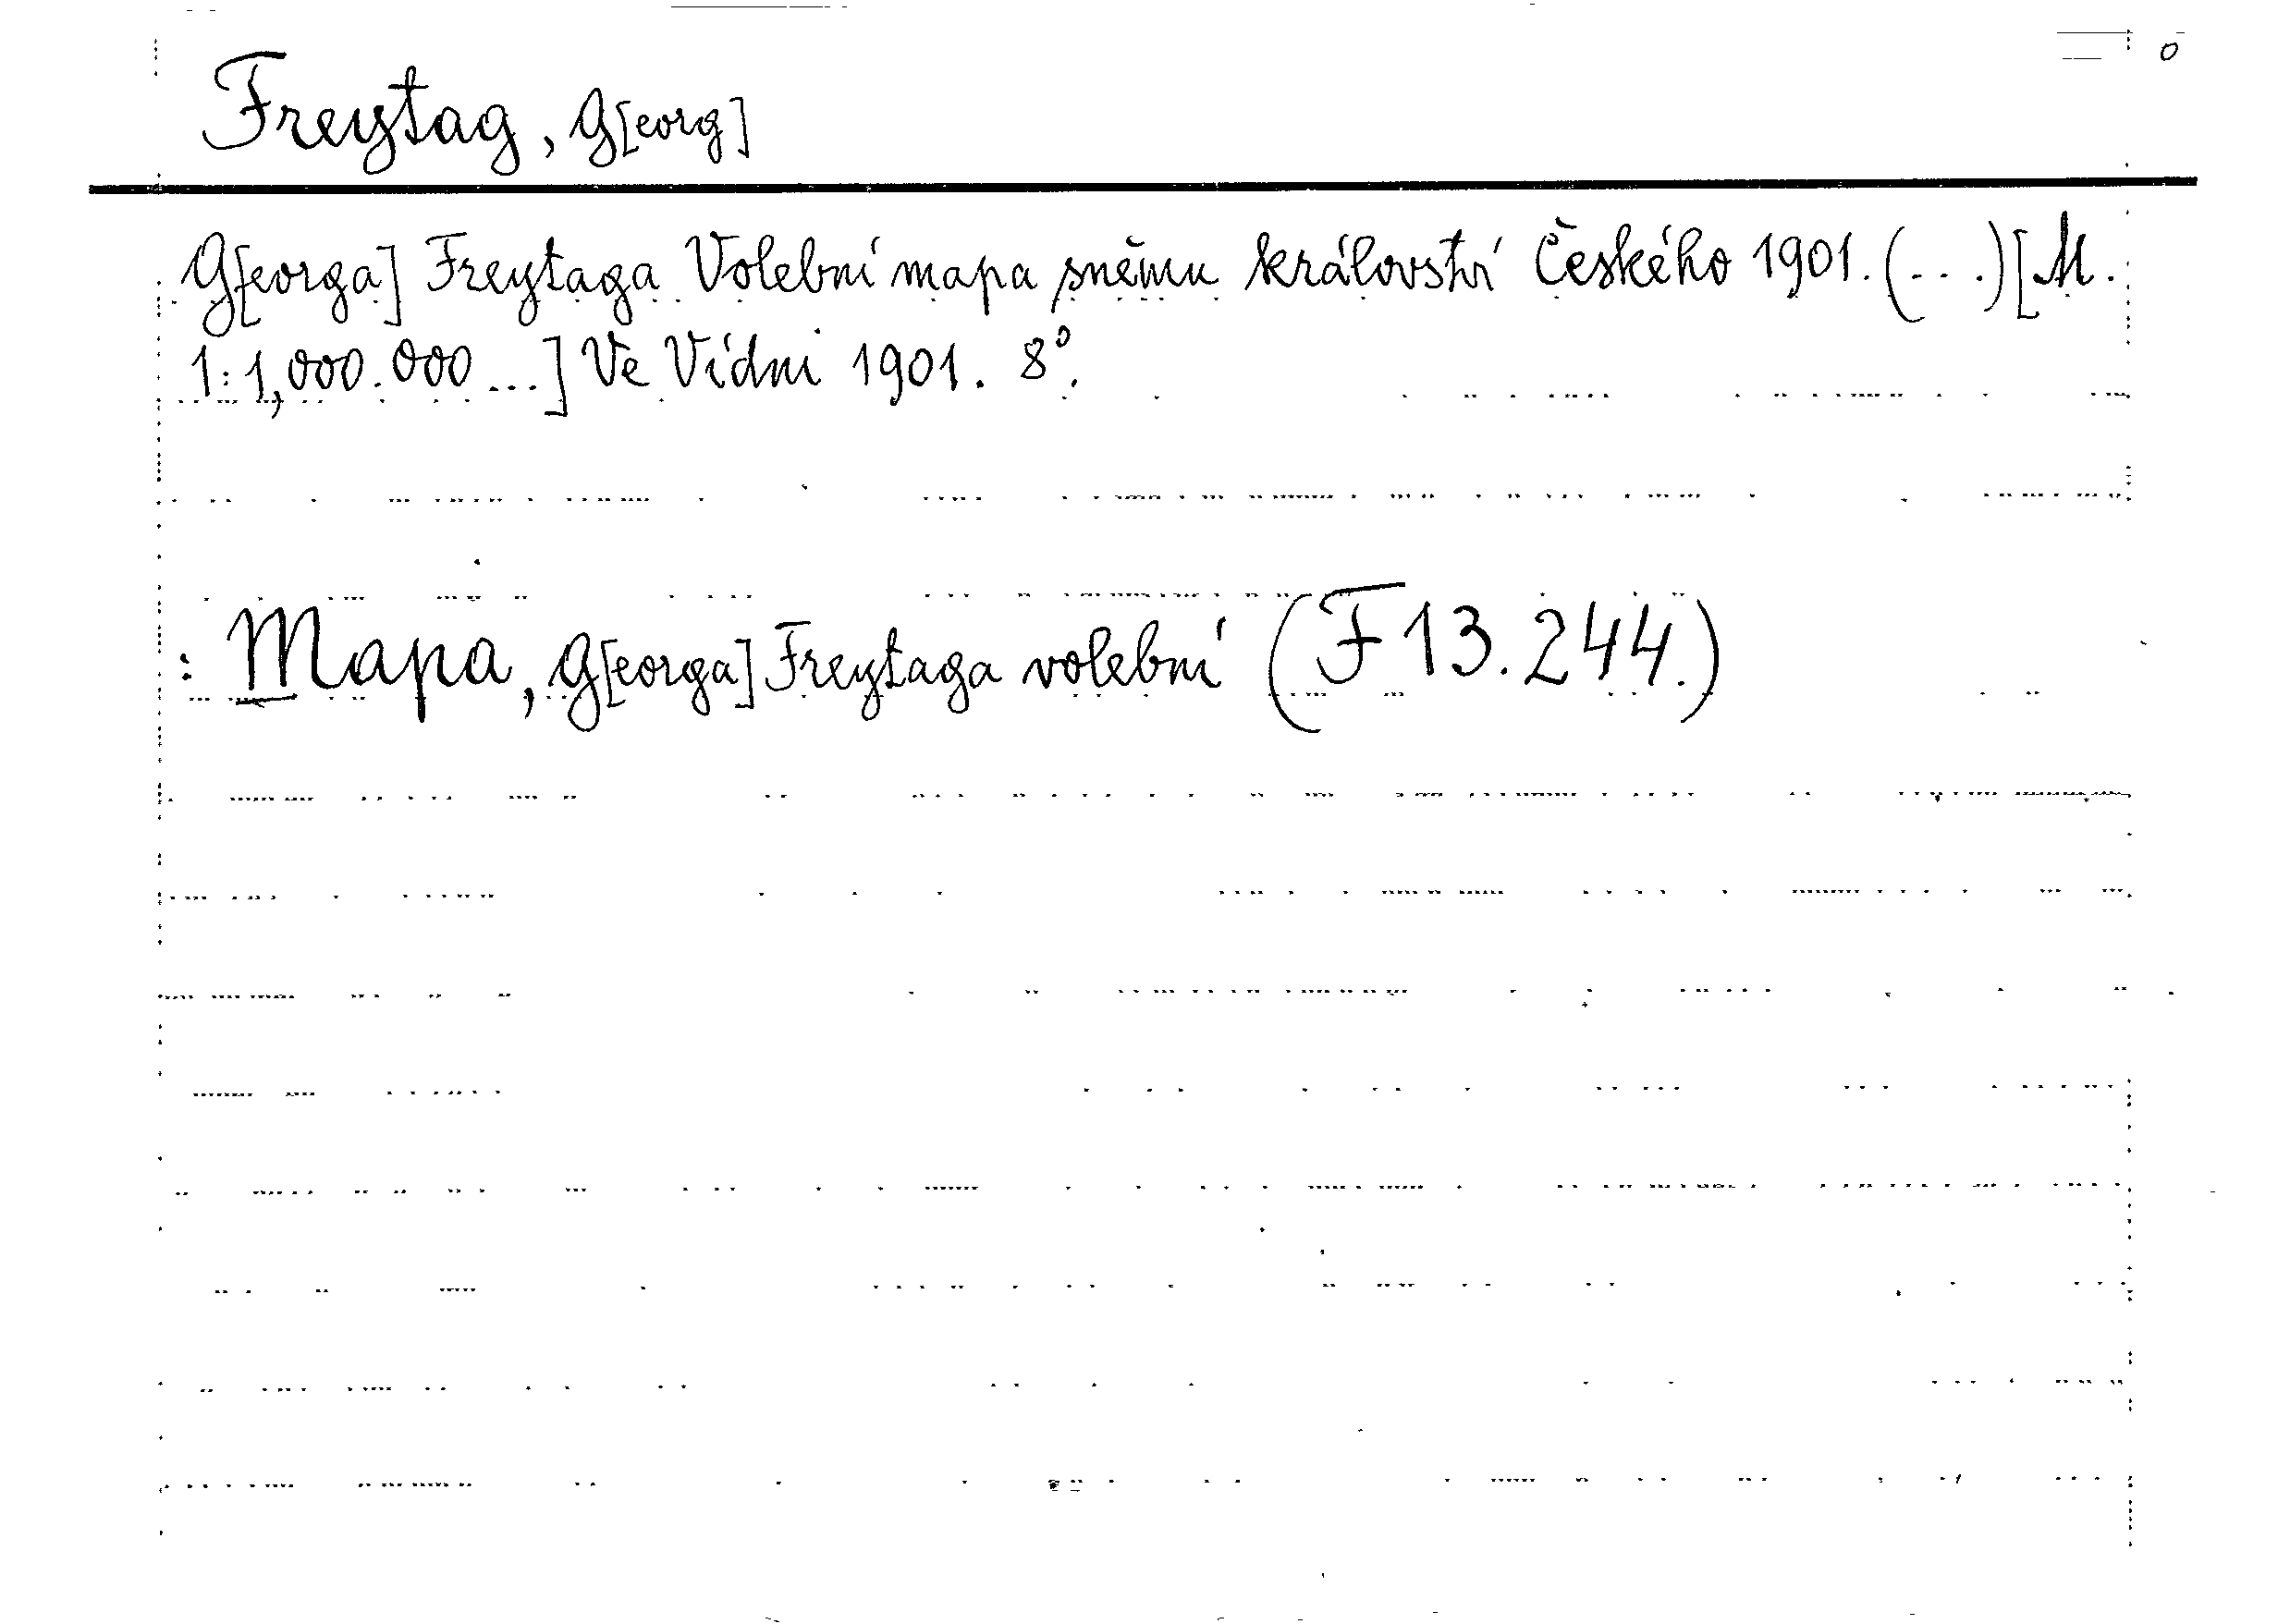 0
Freytag, G[eorg]
G[eorga] Freytaga Volební mapa sněmu království Českého 1901. (...) [M.
1:1,000.000 ...] Ve Vídni 1901. 8°.
: Mapa, G[eorga] Freytaga volební (F 13.244.)